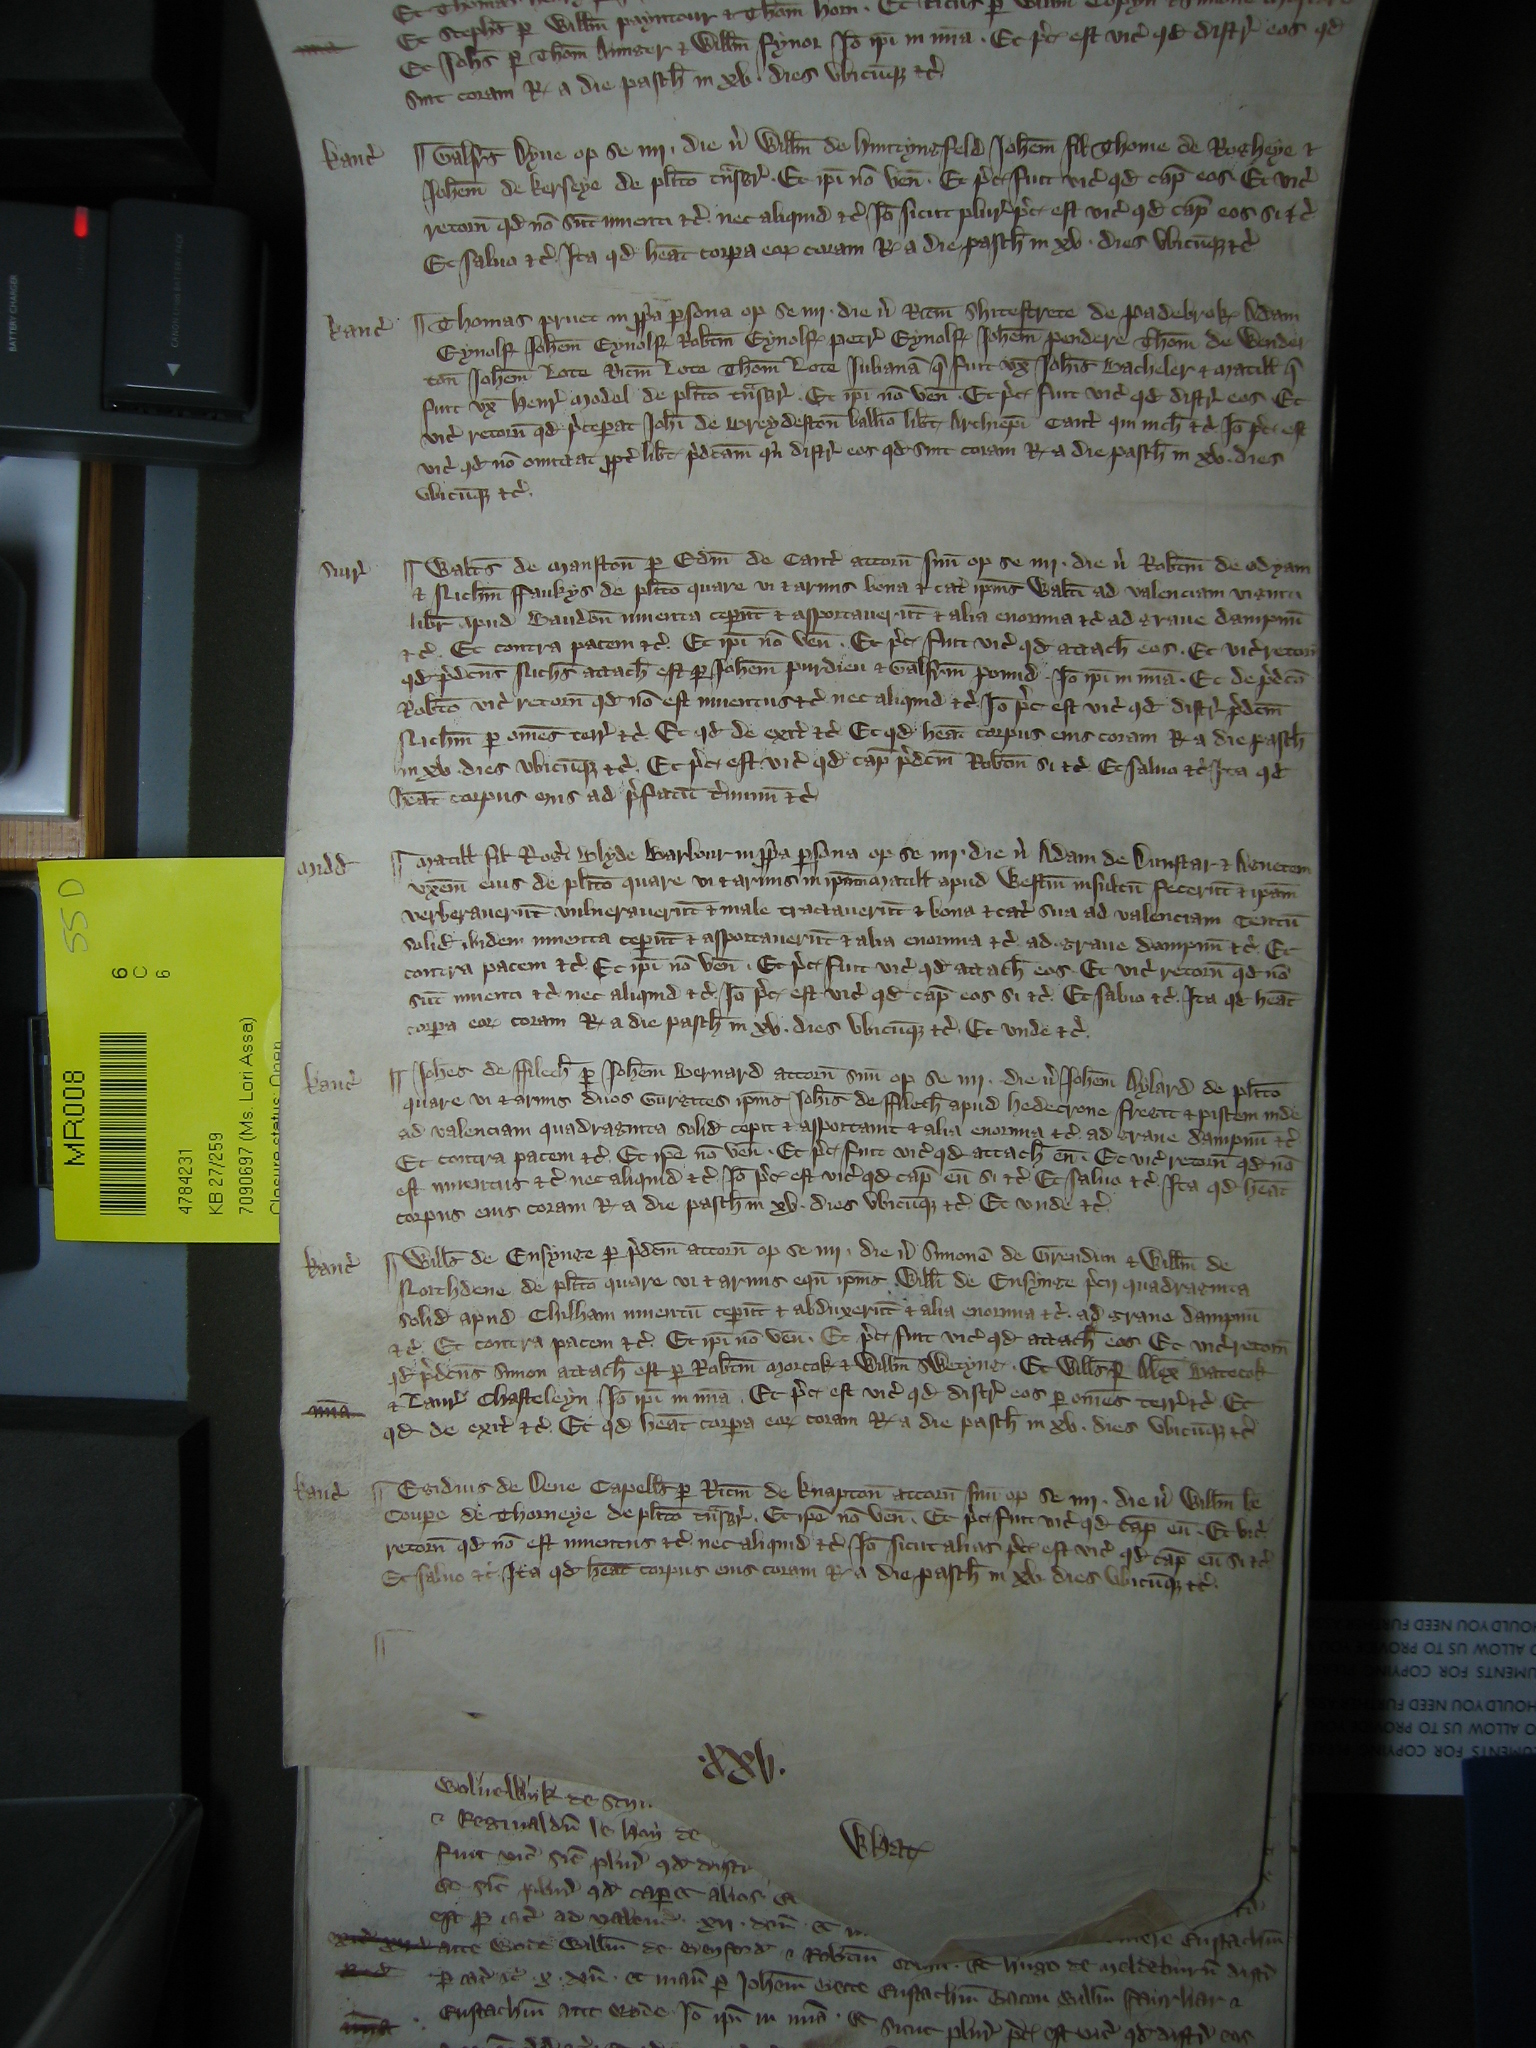 Et Steph̄s p Will̄m payntour & Thom̄ Horn
Et Joh̄s p Thom̄ & Will̄m Fynor Jō ip̄i in m̄ia . Et p̄c est vic̄ qd distr̄ eos qd
sint coram R a die pasch̄ in xv . dies vbicūq &c̄
kanc̄ Galfr̄s Dyne op se iiij . die v̄ Will̄m de Huntyngfeld Joh̄em fil Thome de &
Joh̄em de kerseye de pl̄ito tn̄sgr̄ . Et ip̄i nō ven̄ . Et p̄c fuit vic̄ qd cap̄ eos Et vic̄
retorn̄ qd nō sūt inuenti &c̄ . nec aliquid &c̄ Jō sicut plur̄ p̄c est vic̄ qd cap̄ eos si &c̄
Et saluo &c̄ . Ita qd heāt corpa eor coram R a die pasch̄ in xv . dies vbicūq &c̄
kanc̄ Thomas pruet in pp̄a p̄sona op se iiij . die v̄ Ric̄m Shitestrete de padebrok Adam
Eynolf Joh̄em Eynolf Rob̄tm Eynolf petr̄ Eynolf Joh̄em pendere Thom̄ de Wender
ton̄ Joh̄em Lote Ric̄m Lote Thom̄ Lote Julianā q̄ fuit vx̄ Joh̄is Bacheler & Matill̄ q̄
fuit vx̄ Henr̄ Model de pl̄ito tn̄sgr̄ . Et ip̄i nō ven̄ . Et p̄c fuit vic̄ qd distr̄ eos Et
vic̄ retorn̄ qd p̄cepat Joh̄i de Breydeston̄ ball̄io lib̄t Archiep̄i Cant̄ qui nich̄ &c̄ Jō p̄c est
vic̄ qd nō omittat ppt̄ lib̄t p̄dc̄am qn̄ distr̄ eos qd sint coram R a die pasch̄ in xv . dies
vbicūq &c̄ .
Surr̄ Walt̄s de Manston̄ p Edm̄ de Cant̄ attorn̄ suū op se iiij . die v̄ Rob̄tm de Odyam
& Nich̄m Ffaukys de pl̄ito quare vi & armis bona & cat̄ ip̄ius Walt̄i ad valenciam viginti
libr̄ apud inuenta cepūt & asportauerūt & alia enormia &c̄ ad graue dampnū
&c̄ . Et contra pacem &c̄ . Et ip̄i nō ven̄ . Et p̄c fuit vic̄ qd attach̄ eos . Et vic̄ retorn̄
qd p̄dc̄us Nich̄s attach̄ est p Joh̄em purdieu & Galfr̄m Jō ip̄i in m̄ia . Et de p̄dc̄o
Rob̄to vic̄ retorn̄ qd nō est inuentus &c̄ nec aliquid &c̄ Jō p̄c est vic̄ qd distr̄ p̄dc̄m
Nich̄m p om̄es terr̄ &c̄ . Et qd de exit̄ &c̄ Et qd heāt corpus eius coram R a die pasch̄
in xv . dies vbicūq &c̄ . Et p̄c est vic̄ qd cap̄ p̄dc̄m Rob̄tm si &c̄ Et saluo &c̄ Ita qd
heāt corpus eius ad p̄fatū t̄minū &c̄
Midd̄ Matill̄ fil Roḡi Blyde Barbour in pp̄a p̄sona op se iiij . die v̄ Adam de Dunstar & Agnetem
vxēm eius de pl̄ito quare vi & armis in ip̄am Matill̄ apud Westm̄ insultū fecerūt & ip̄am
verberauerūt vulnerauerūt & male tractauerūt & bona & cat̄ sua ad valenciam Centū
solid ibidem inuenta cepūt & asportauerūt & alia enormia &c̄ . ad graue dampnū &c̄ . Et
contra pacem &c̄ Et ip̄i nō ven̄ . Et p̄c fuit vic̄ qd attach̄ eos . Et vic̄ retorn̄ qd nō
sūt inuenti &c̄ nec aliquid &c̄ . Jō p̄c est vic̄ qd cap̄ eos si &c̄ . Et saluo &c̄ . Ita qd heāt
corpa eor coram R a die pasch̄ in xv . dies vbicūq &c̄ . Et vnde &c̄ .
kanc̄ Joh̄es de Ffilech̄ p Joh̄em Bernard attorn̄ suū op se iiij . die v̄ Joh̄em Aylard de pl̄ito
quare vi & armis duos Gurgites ip̄ius Joh̄is de Ffilech̄ apud Hedecrone fregit & piscem inde
ad valenciam quadraginta solid cepit & asportauit & alia enormia &c̄ . ad graue dampnū &c̄
Et contra pacem &c̄ . Et ip̄e nō ven̄ . Et p̄c fuit vic̄ qd attach̄ eū . Et vic̄ retorn̄ qd nō
est inuentus &c̄ nec aliquid &c̄ . Jō p̄c est vic̄ qd cap̄ eū si &c̄ Et saluo &c̄ . Ita qd heāt
corpus eius coram R a die pasch̄ in xv . dies vbicūq &c̄ . Et vnde &c̄ .
kanc̄ Will̄s de Ensynge p p̄dc̄m attorn̄ op se iiij . die v̄ Simonē de Grendun & Will̄m de
Northdene de pl̄ito quare vi & armis eqū ip̄ius Will̄i de Ensynge p̄cij quadraginta
solid apud Chilham inuentū cepūt & abduxerūt & alia enormia &c̄ . ad graue dampnū
&c̄ . Et contra pacem &c̄ . Et ip̄i nō ven̄ . Et p̄c fuit vic̄ qd attach̄ eos Et vic̄ retorn̄
qd p̄dc̄us Simon attach̄ est p Rob̄tm Morcok & Will̄m Swetyng . Et Will̄s p Alex̄ Batecok
m̄ia & Laur̄ Chasteleyn Jō ip̄i in m̄ia . Et p̄c est vic̄ qd distr̄ eos p om̄es terr̄ &c̄ . Et
qd de exit̄ &c̄ . Et qd heāt corpa eor coram R a die pasch̄ in xv . dies vbicūq &c̄
kanc̄ Egidius de Dene Capell̄s p Ric̄m de knapton̄ attorn̄ suū op se iiij . die v̄ Will̄m le
Coupe de Thorneye de pl̄ito tn̄sgr̄ . Et ip̄e nō ven̄ . Et p̄c fuit vic̄ qd cap̄ eū . Et vic̄
retorn̄ qd nō est inuentus &c̄ nec aliquid &c̄ Jō sicut alias p̄c est vic̄ qd cap̄ eū si &c̄
Et saluo &c̄ Ita qd heāt corpus eius coram R a die pasch̄ in xv dies vbicūq &c̄ .
.xxv.
What
& Reginaldū le
fuit vic̄ sic̄ plur̄ qd distr̄
Et sic̄ plur̄ qd cap alios Et
est p cat̄ ad valenc̄ . xij . den̄ . Et
atte Wode Will̄m de & Rob̄tm Et Hugo de Meldeburn̄ distr̄
p cat̄ &c̄ . x . den̄ . et man̄ p Joh̄em Eustachiū Bacon Will̄m Ffairhar &
Eustachiū atte Wode Jō ip̄i in m̄ia . Et sicut plur̄ p̄c est vic̄ qd distr̄ eos
BATTERY CHARGER
CANON
55 D
MR008
6
C
6
4784231
KB 27/259
7090697 (Ms. Lori Assa)
Closure status: Open
SHOULD YOU NEED FURTHER
TO ALLOW US TO PROVIDE
DOCUMENTS FOR COPYING
SHOULD YOU NEED FURTHER
TO ALLOW US TO PROVIDE
DOCUMENTS FOR COPYING